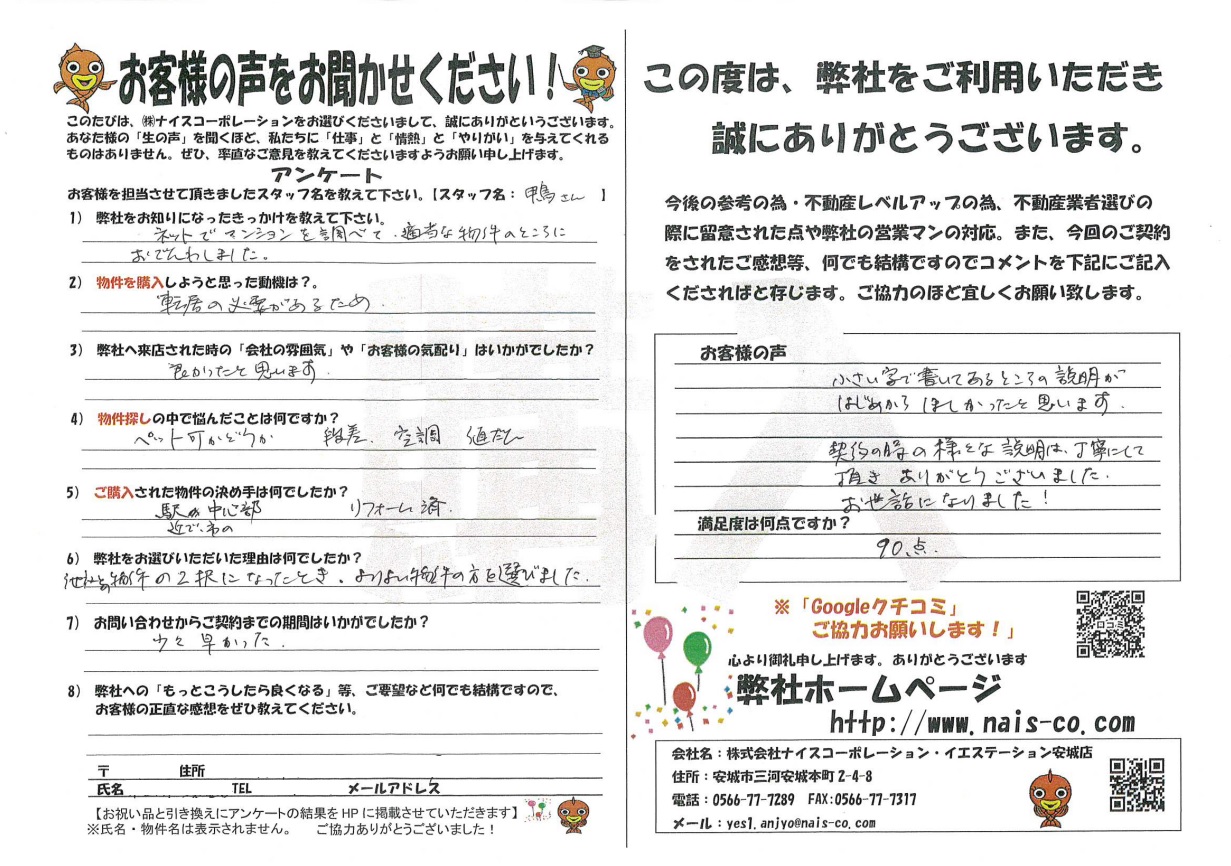 お客様の声をお聞かせください！
このたびは、㈱ナイスコーポレーションをお選びくださいまして、誠にありがとういございます。
あなた様の「生の声」を聞くほど、私たちに「仕事」と「情熱」と「やりがい」を与えてくれる
ものはありません。ぜひ、率直なご意見を教えてくださいますようお願い申し上げます。
アンケート
お客様を担当させて頂きましたスタッフ名を教えて下さい。【スタッフ名： 鴨さん 】
1） 弊社をお知りになったきっかけを教えて下さい。
ネットでマンションを調べて、適当な物件のところに
おでんわしました。
2） 物件を購入しようと思った動機は？。
転居の必要があるため
3） 弊社へ来店された時の「会社の雰囲気」や「お客様の気配り」はいかがでしたか？
良かったと思います。
4） 物件探しの中で悩んだことは何ですか？
ペット可かどうか 段差、空調 値だん
5） ご購入された物件の決め手は何でしたか？
駅が 中心部 リフォーム済
近で、市の
6） 弊社をお選びいただいた理由は何でしたか？
他社の物件の2択になったとき、よりよい物件の方を選びました。
7） お問い合わせからご契約までの期間はいかがでしたか？
少々早かった。
8） 弊社への「もっとこうしたら良くなる」等、ご要望など何でも結構ですので、
お客様の正直な感想をぜひ教えてください。
〒 住所
氏名 TEL メールアドレス
【お祝い品と引き換えにアンケートの結果をHPに掲載させていただきます】
※氏名・物件名は表示されません。 ご協力ありがとうございました！
この度は、弊社をご利用いただき
誠にありがとうございます。
今後の参考の為・不動産レベルアップの為、不動産業者選びの
際に留意された点や弊社の営業マンの対応。また、今回のご契約
をされたご感想等、何でも結構ですのでコメントを下記にご記入
くだされればと存じます。ご協力のほど宜しくお願い致します。
お客様の声
小さい字で書いてあるところの説明が
はじめから ほしかったと思います。
契約の時の様々な説明は、丁寧にして
頂き ありがとうございました。
お世話になりました！
満足度は何点ですか？
90点。
※「Googleクチコミ」
ご協力お願いします！」
口コミ
心より御礼申し上げます。ありがとうございます
弊社ホームページ
http://www.nais-co.com
会社名：株式会社ナイスコーポレーション・イエステーション安城店
住所：安城市三河安城本町2-4-8
電話：0566-77-7289 FAX:0566-77-7317
メール：yes1.anjyo@nais-co.com